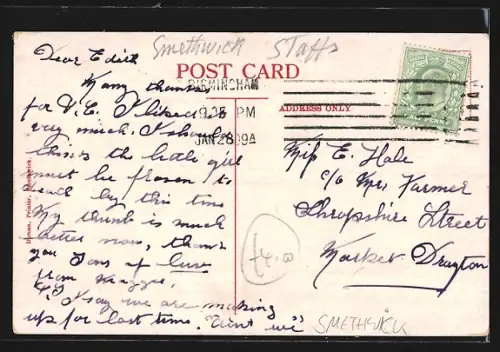 Smethwick Staffs
POST CARD
BIRMINGHAM
9.35 PM
JAN 28 09
ADDRESS ONLY
Dear Edith
Many thanks
for V.C. I liked it
very much. I should
think the little girl
must be frozen to
death by this time
My thumb is much
better now, thank
you Tons of love
from Maggie,
PS I say we are making
up for last time. "Aint we"
Miss E. Hale
c/o Mrs Farmer
Shropshire Street
Market Drayton
£4.00
SMETHWICK
Printer, Smethwick.